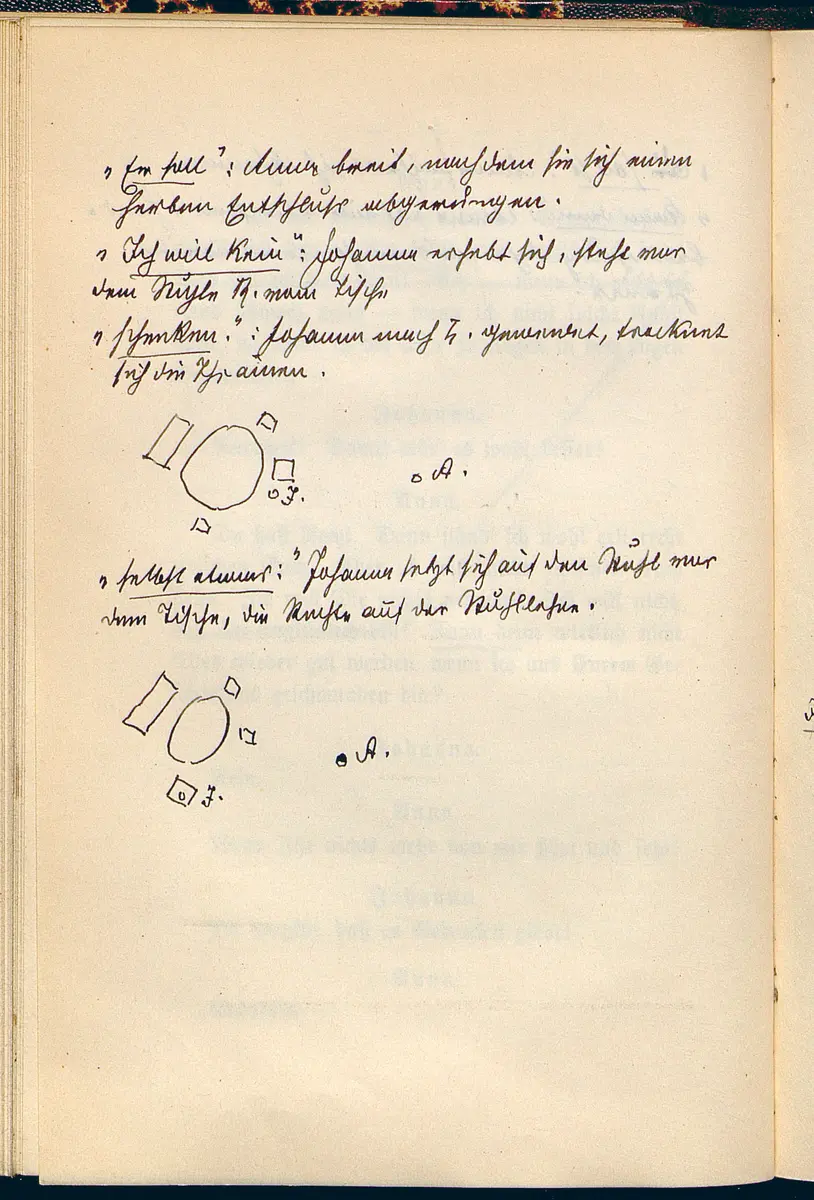 „Er soll": Anna bereit, nachdem sie sich einen
herben Entschluss abgerungen.
„Ich will kein": Johanna erhebt sich, steht vor
dem Stuhle R. vom Tische
„schenken.": Johanna nach L. gewendet, trocknet
sich die Thränen.
A.
J.
„selbst etwas:" Johanna setzt sich auf den Stuhl vor
dem Tische, die Rechte auf der Stuhllehne.
A.
J.